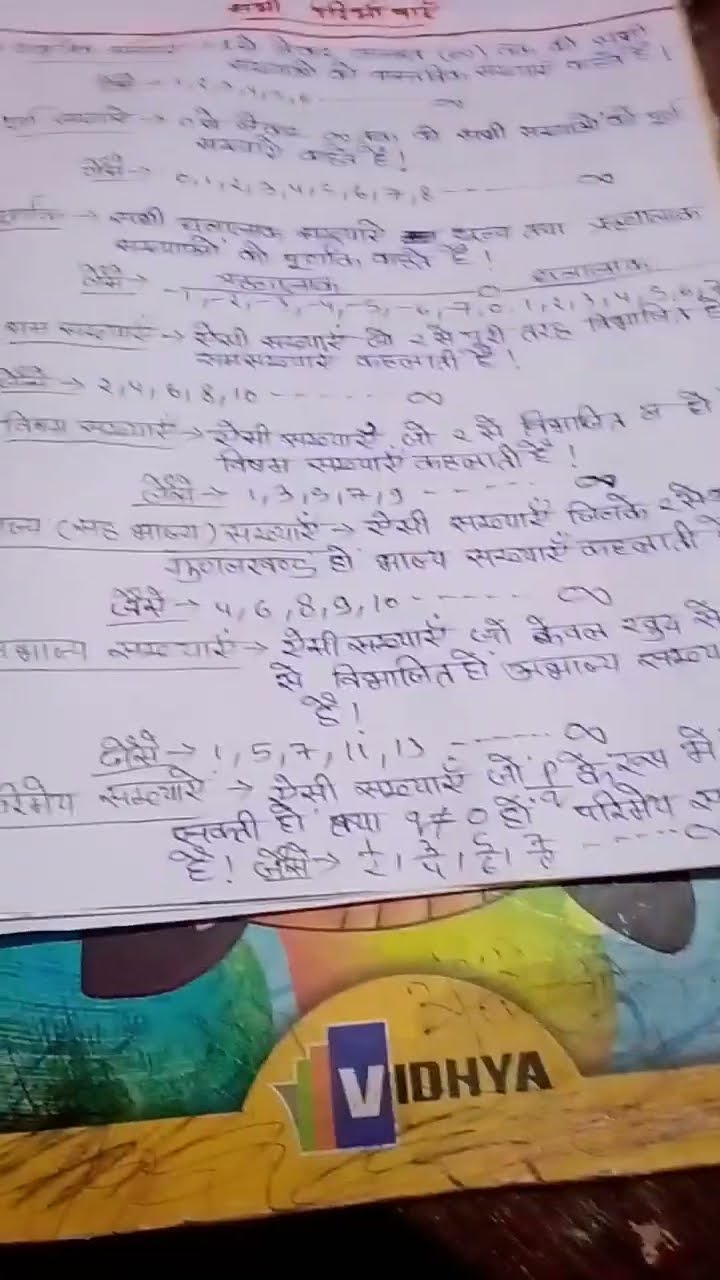 सभी परिभाषाएँ
संख्याओं को कहते है।
जैसे → 1, 2, 3, 4, 5, 6 ------- ∞
संख्याऐ → 0 से लेकर ∞ तक की सभी संख्याओं को पूर्ण
संख्याऐ कहते है!
जैसे → 0, 1, 2, 3, 4, 5, 6, 7, 8 ------- ∞
→ सभी धनात्मक संख्याऐ शून्य तथा ऋणात्मक
संख्याओं को पूर्णांक कहते है!
जैसे → ऋणात्मक धनात्मक
-1, -2, -3, -4, -5, -6, -7, 0, 1, 2, 3, 4, 5, 6
सम संख्याएँ → ऐसी संख्याएँ जो 2 से पुरी तरह विभाजित हो
सम संख्याएँ कहलाती है!
जैसे → 2, 4, 6, 8, 10 ------- ∞
विषम संख्याएँ → ऐसी संख्याएँ जो 2 से विभाजित न हो
विषम संख्याएँ कहलाती है!
जैसे → 1, 3, 5, 7, 9 ------- ∞
(सह भाज्य) संख्याएँ → ऐसी संख्याएँ जिनके 2 से
गुणनखण्ड हो भाज्य संख्याएँ कहलाती
जैसे → 4, 6, 8, 9, 10 ------- ∞
भाज्य संख्याएँ → ऐसी संख्याएँ जो केवल खुद से
से विभाजित हो अभाज्य
है!
जैसे → 1, 5, 7, 11, 13 ------- ∞
संख्याऐ → ऐसी संख्याएँ जो p/q के रूप में
सकती हो तथा q ≠ 0 हो परिमेय
है! जैसे → 1/2, 3/4, 5/6, 7/8 ------- ∞
VIDHYA